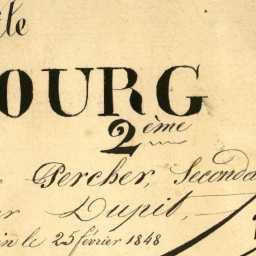 OURG
2ème
Percher, Seconda
Dupit,
in le 25 février 1848